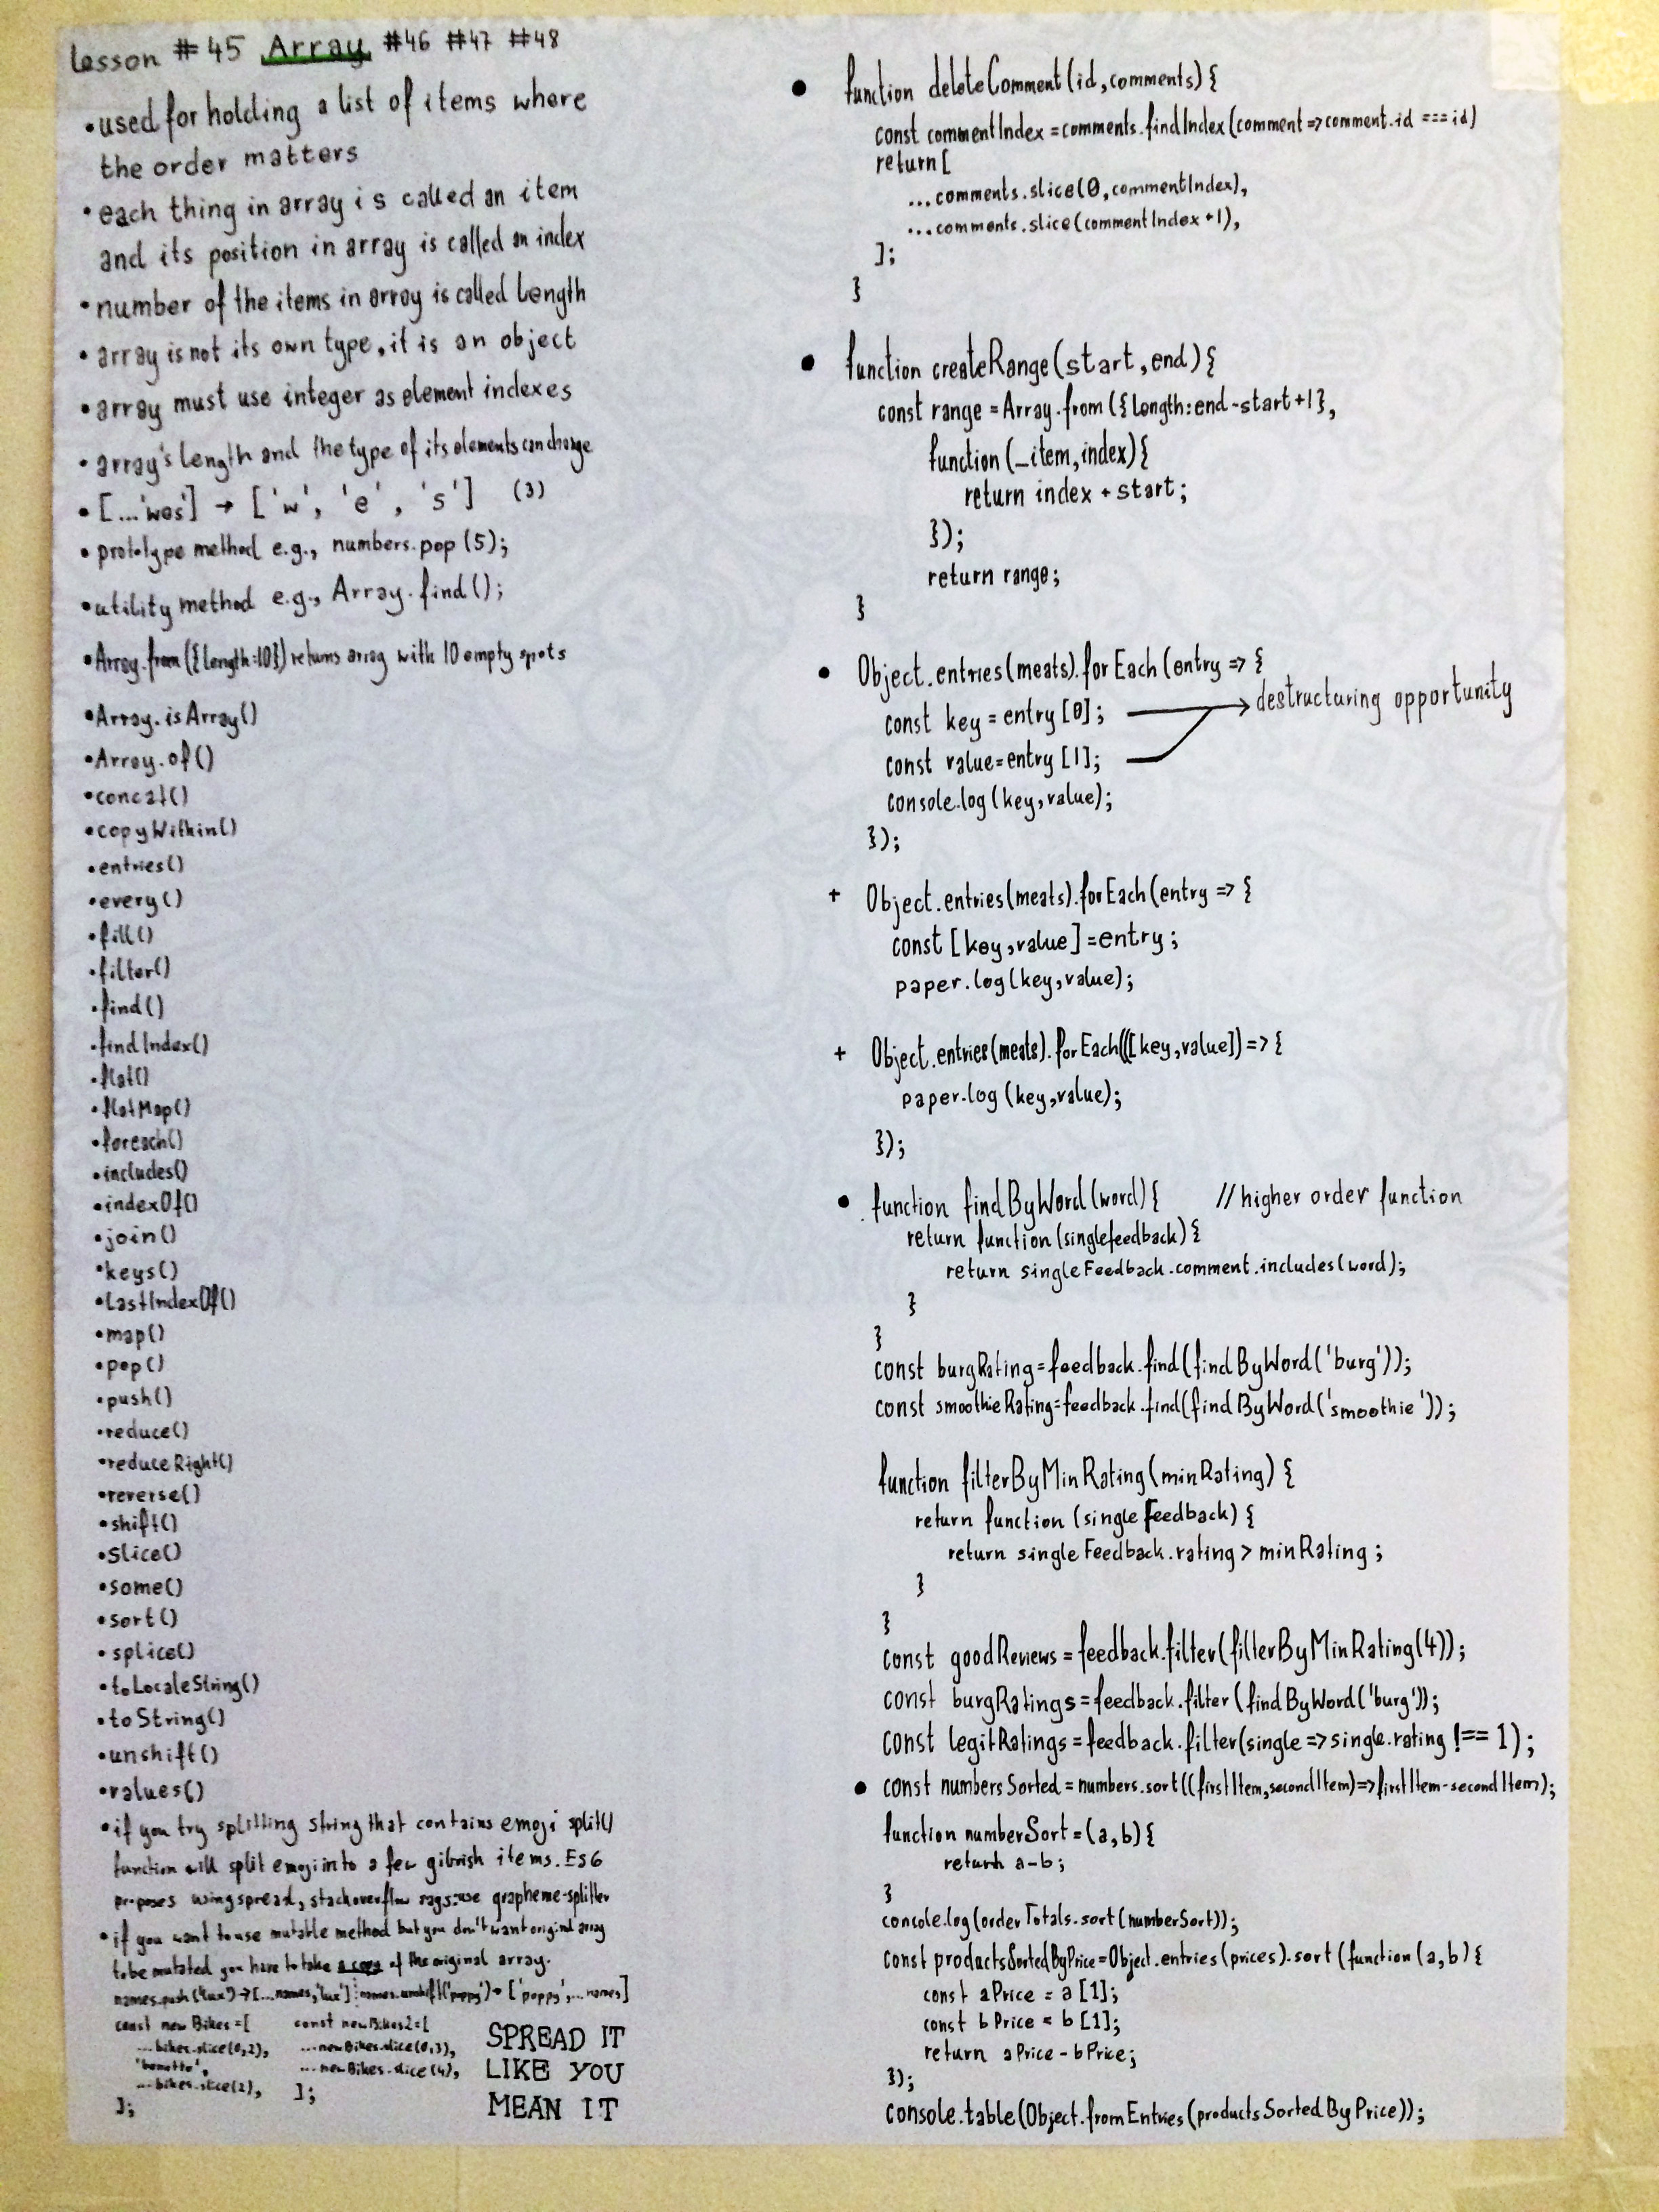 lesson #45 Array #46 #47 #48
•used for holding a list of items where
the order matters
•each thing in array is called an item
and its position in array is called an index
•number of the items in array is called length
•array is not its own type, it is an object
•array must use integer as element indexes
•array's length and the type of its elements can change
•[...'wes'] → ['w', 'e', 's'] (3)
•prototype method e.g., numbers.pop(5);
•utility method e.g., Array.find();
•Array.from({length:10}) returns array with 10 empty spots
•Array.isArray()
•Array.of()
•concat()
•copyWithin()
•entries()
•every()
•fill()
•filter()
•find()
•findIndex()
•flat()
•flatMap()
•foreach()
•includes()
•indexOf()
•join()
•keys()
•LastIndexOf()
•map()
•pop()
•push()
•reduce()
•reduceRight()
•reverse()
•shift()
•Slice()
•some()
•sort()
•splice()
•toLocaleString()
•toString()
•unshift()
•values()
•if you try splitting string that contains emoji split()
function will split emoji into a few gibrish items. Es6
proposes using spread, stackoverflow says:use grapheme-splitter
•if you want to use mutable method but you don't want original array
to be mutated you have to take a copy of the original array.
names.push('lux')→[...names,'lux'] names.unshift('poppy')→['poppy',...names]
const newBikes=[
...bikes.slice(0,2),
'benotto',
...bikes.slice(2),
];
const newBikes2=[
...newBikes.slice(0,3),
...newBikes.slice(4),
];
SPREAD IT
LIKE YOU
MEAN IT
• function deleteComment(id,comments){
const commentIndex=comments.findIndex(comment=>comment.id===id)
return[
...comments.slice(0,commentIndex),
...comments.slice(commentIndex+1),
];
}
• function createRange(start,end){
const range=Array.from({length:end-start+1},
function(_item,index){
return index+start;
});
return range;
}
• Object.entries(meats).forEach(entry => {
const key=entry[0]; → destructuring opportunity
const value=entry[1];
console.log(key,value);
});
+ Object.entries(meats).forEach(entry => {
const [key,value]=entry;
paper.log(key,value);
+ Object.entries(meats).forEach(([key,value])=>{
paper.log(key,value);
});
• function findByWord(word){ //higher order function
return function(singlefeedback){
return singleFeedback.comment.includes(word);
}
}
const burgRating=feedback.find(findByWord('burg'));
const smoothieRating=feedback.find(findByWord('smoothie'));
function filterByMinRating(minRating){
return function(singleFeedback){
return singleFeedback.rating>minRating;
}
}
const goodReviews=feedback.filter(filterByMinRating(4));
const burgRatings=feedback.filter(findByWord('burg'));
const legitRatings=feedback.filter(single=>single.rating !== 1);
• const numbersSorted=numbers.sort((firstItem,secondItem)=>firstItem-secondItem);
function numberSort=(a,b){
return a-b;
}
concole.log(orderTotals.sort(numberSort));
const productsSortedByPrice=Object.entries(prices).sort(function(a,b){
const aPrice = a[1];
const bPrice = b[1];
return aPrice-bPrice;
});
console.table(Object.fromEntries(productsSortedByPrice));